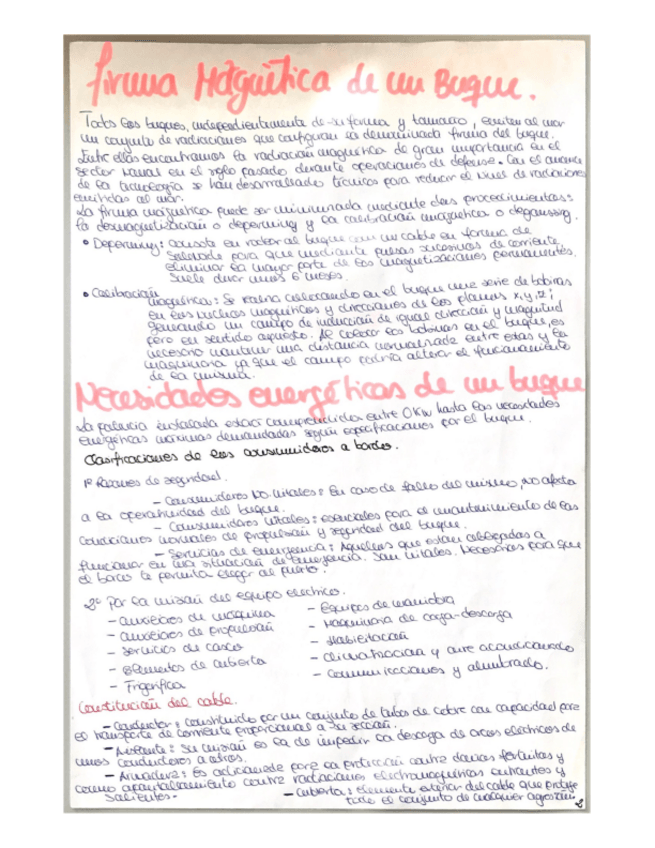 Firma Magnética de un Buque.
Todos los buques, independientemente de su forma y tamaño, emiten al mar
un conjunto de radiaciones que configuran la denominada firma del buque.
Entre ellas encontramos la radiación magnética de gran importancia en el
sector naval en el siglo pasado durante operaciones de defensa. Con el avance
de la tecnología se han desarrollado técnicas para reducir el nivel de radiaciones
emitidas al mar.
La firma magnética puede ser minimizada mediante dos procedimientos:
la desmagnetización o deperming y la calibración magnética o degaussing.
• Deperming: consiste en rodear al buque con un cable en forma de
solenoide para que mediante pulsos sucesivos de corriente
eliminar la mayor parte de los magnetizaciones permanentes.
Suele durar unos 6 meses.
• Calibración
magnética: Se realiza colocando en el buque una serie de bobinas
en los núcleos magnéticos y direcciones de los planos x, y, z;
generando un campo de inducción de igual dirección y magnitud
pero en sentido opuesto. Al colocar las bobinas en el buque, es
necesario mantener una distancia normalizada entre estas y la
maquinaria ya que el campo podría alterar el funcionamiento
de la misma.
Necesidades energéticas de un buque
La potencia instalada estará comprendida entre 0 KW hasta las necesidades
energéticas máximas demandadas según especificaciones por el buque.
Clasificaciones de los consumidores a bordo.
1º Razones de seguridad.
- Consumidores NO vitales: En caso de fallo del mismo, no afecta
a la operatividad del buque.
- Consumidores vitales: esenciales para el mantenimiento de las
condiciones normales de propulsión y seguridad del buque.
- Servicios de emergencia: Aquellos que están obligados a
funcionar en una situación de emergencia. Son vitales. Necesarios para que
el barco te permita llegar al puerto.
2º Por la misión del equipo eléctrico.
- auxiliares de máquina
- auxiliares de propulsión
- servicios de casco
- elementos de cubierta
- Frigorífica
- Equipos de maniobra
- Maquinaria de carga-descarga
- Habilitación
- Climatización y aire acondicionado
- Comunicaciones y alumbrado.
Constitución del cable.
- Conductor: constituido por un conjunto de tubos de cobre con capacidad para
el transporte de corriente proporcionales a su sección.
- Aislante: Su misión es la de impedir la descarga de arcos eléctricos de
unos conductores a otros.
- Armadura: Es adicionada para la protección contra daños fortuitos y
como apantallamiento contra radiaciones electromagnéticas entrantes y
salientes.
- Cubierta: elemento exterior del cable que protege
todo el conjunto de cualquier agresión.